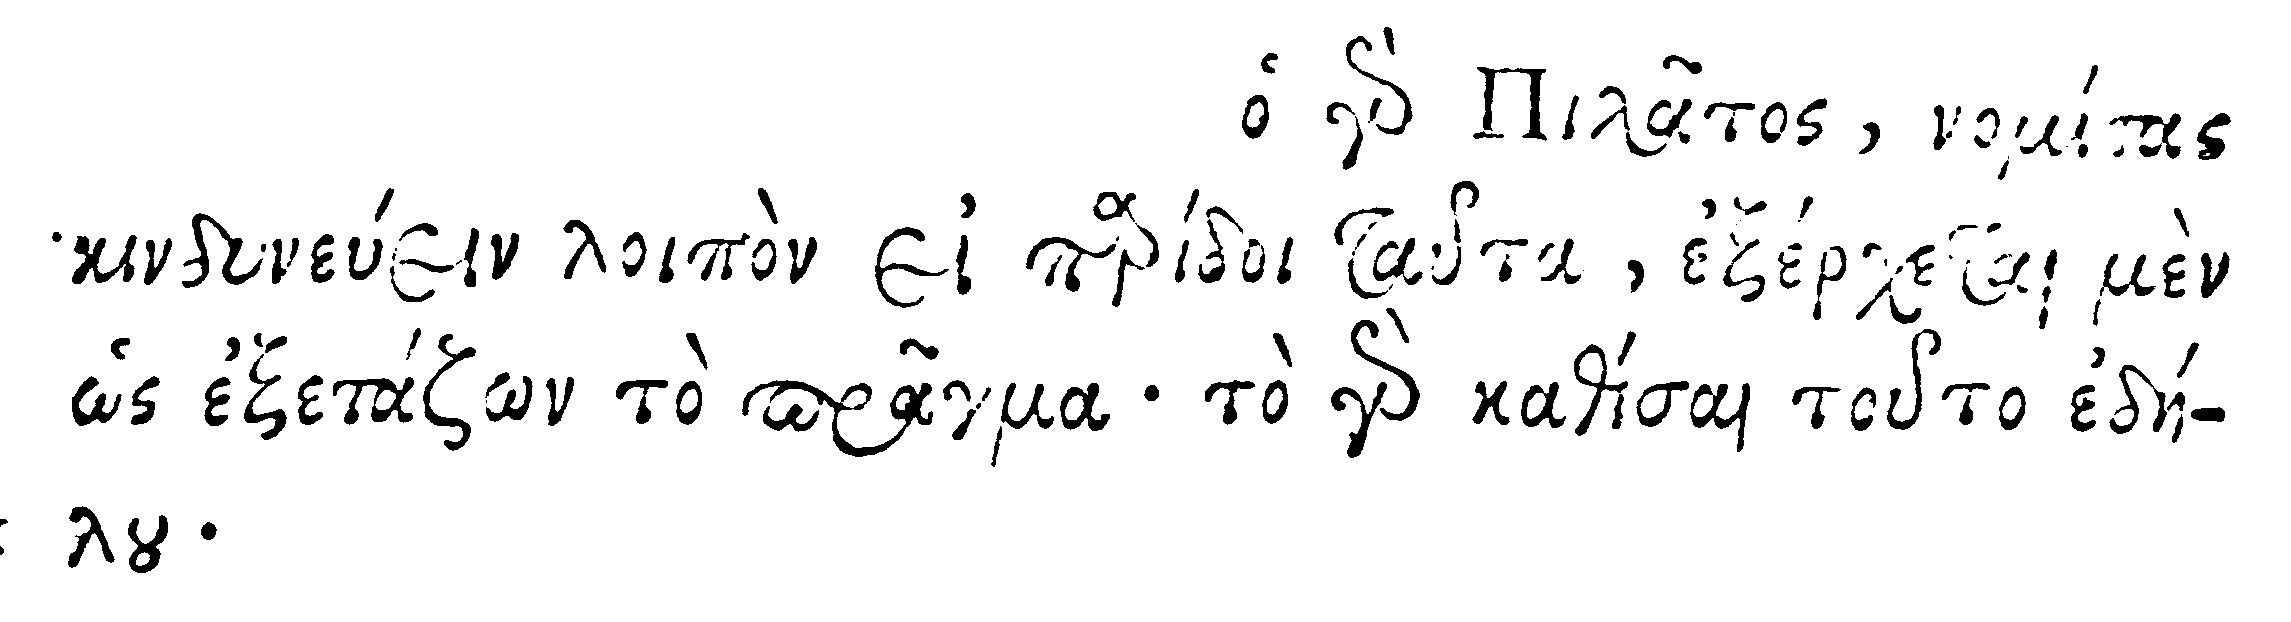 ὁ γὰρ Πιλᾶτος, νομίσας
κινδυνεύειν λοιπὸν εἰ παρίδοι ταῦτα, ἐξέρχεται μὲν
ὡς ἐξετάζων τὸ πρᾶγμα· τὸ γὰρ καθίσαι τοῦτο ἐδή-
λου·